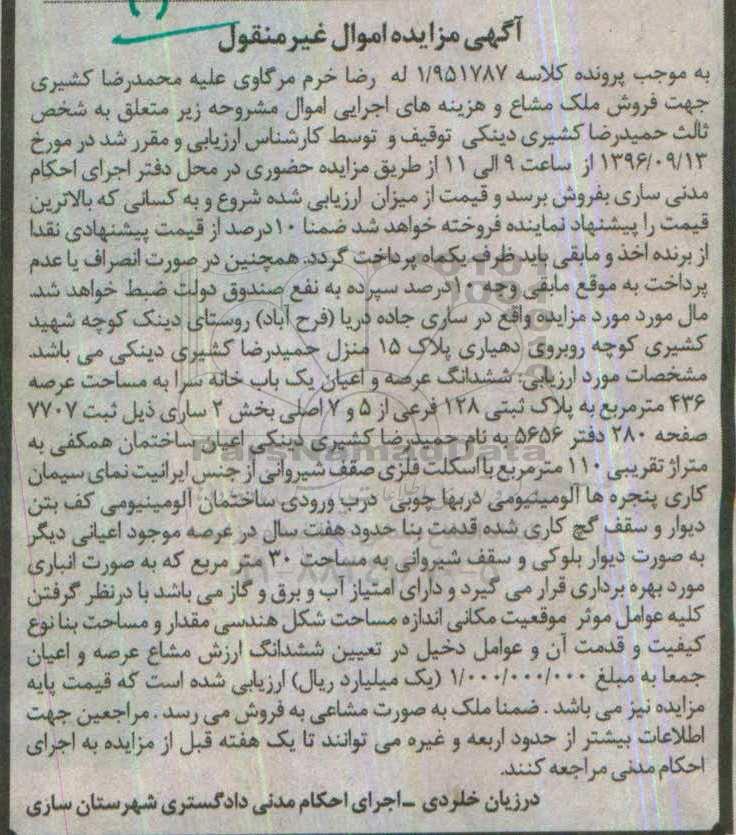 آگهی مزایده اموال غیرمنقول
به موجب پرونده کلاسه ۱/۹۵۱۷۸۷ له رضا خرم مرگاوی علیه محمدرضا کشیری
جهت فروش ملک مشاع و هزینه های اجرایی اموال مشروحه زیر متعلق به شخص
ثالث حمیدرضا کشیری دینکی توقیف و توسط کارشناس ارزیابی و مقرر شد در مورخ
۱۳۹۶/۰۹/۱۳ از ساعت ۹ الی ۱۱ از طریق مزایده حضوری در محل دفتر اجرای احکام
مدنی ساری بفروش برسد و قیمت از میزان ارزیابی شده شروع و به کسانی که بالاترین
قیمت را پیشنهاد نماینده فروخته خواهد شد ضمنا ۱۰درصد از قیمت پیشنهادی نقدا
از برنده اخذ و مابقی باید ظرف یکماه پرداخت گردد. همچنین در صورت انصراف یا عدم
پرداخت به موقع مابقی وجه ۱۰درصد سپرده به نفع صندوق دولت ضبط خواهد شد.
مال مورد مورد مزایده واقع در ساری جاده دریا (فرح آباد) روستای دینک کوچه شهید
کشیری کوچه روبروی دهیاری پلاک ۱۵ منزل حمیدرضا کشیری دینکی می باشد.
مشخصات مورد ارزیابی: ششدانگ عرصه و اعیان یک باب خانه سرا به مساحت عرصه
۴۳۶ مترمربع به پلاک ثبتی ۱۲۸ فرعی از ۵ و ۷ اصلی بخش ۲ ساری ذیل ثبت ۷۷۰۷
صفحه ۲۸۰ دفتر ۵۶۵۶ به نام حمیدرضا کشیری دینکی اعیان ساختمان همکفی به
متراژ تقریبی ۱۱۰ مترمربع با اسکلت فلزی صقف شیروانی از جنس ایرانیت نمای سیمان
کاری پنجره ها آلومینیومی دربها چوبی درب ورودی ساختمان آلومینیومی کف بتن
دیوار و سقف گچ کاری شده قدمت بنا حدود هفت سال در عرصه موجود اعیانی دیگر
به صورت دیوار بلوکی و سقف شیروانی به مساحت ۳۰ متر مربع که به صورت انباری
مورد بهره برداری قرار می گیرد و دارای امتیاز آب و برق و گاز می باشد با درنظر گرفتن
کلیه عوامل موثر موقعیت مکانی اندازه مساحت شکل هندسی مقدار و مساحت بنا نوع
کیفیت و قدمت آن و عوامل دخیل در تعیین ششدانگ ارزش مشاع عرصه و اعیان
جمعا به مبلغ ۱/۰۰۰/۰۰۰/۰۰۰ (یک میلیارد ریال) ارزیابی شده است که قیمت پایه
مزایده نیز می باشد . ضمنا ملک به صورت مشاعی به فروش می رسد . مراجعین جهت
اطلاعات بیشتر از حدود اربعه و غیره می توانند تا یک هفته قبل از مزایده به اجرای
احکام مدنی مراجعه کنند.
درزیان خلردی -اجرای احکام مدنی دادگستری شهرستان ساری
ParsNamadData